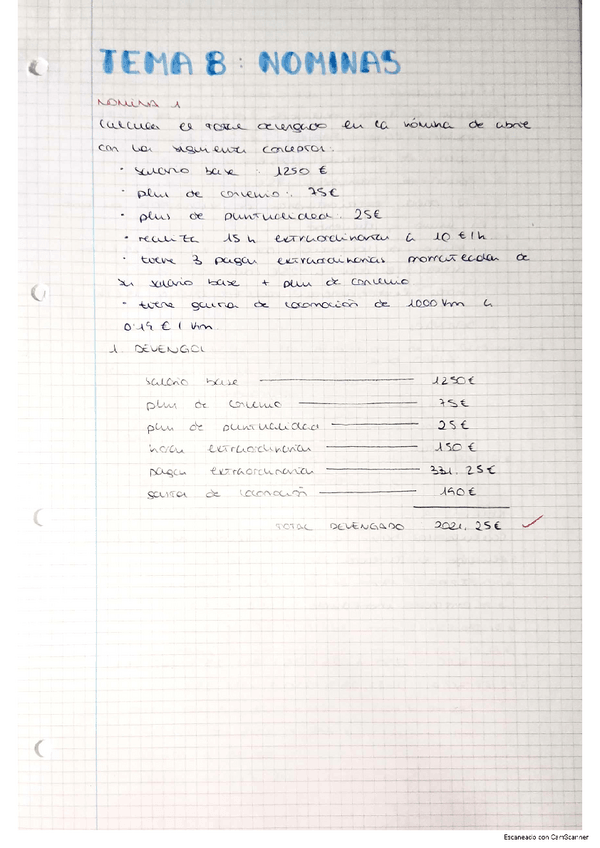 TEMA 8: NOMINAS
NOMINA 1
Calcula el total devengado en la nómina de abril
con los siguientes conceptos:
· salario base : 1250 €
· plus de convenio: 75€
· plus de puntualidad: 25€
· realiza 15 h extraordinarias a 10 €/h
· tiene 3 pagas extraordinarias prorrateadas de
su salario base + plus de convenio
· tiene gastos de locomoción de 1000 km a
0'19 € / km
1. DEVENGOS
salario base 1250€
plus de convenio 75€
plus de puntualidad 25€
horas extraordinarias 150€
pagas extraordinarias 331.25€
gastos de locomoción 190€
TOTAL DEVENGADO 2021.25€
Escaneado con CamScanner